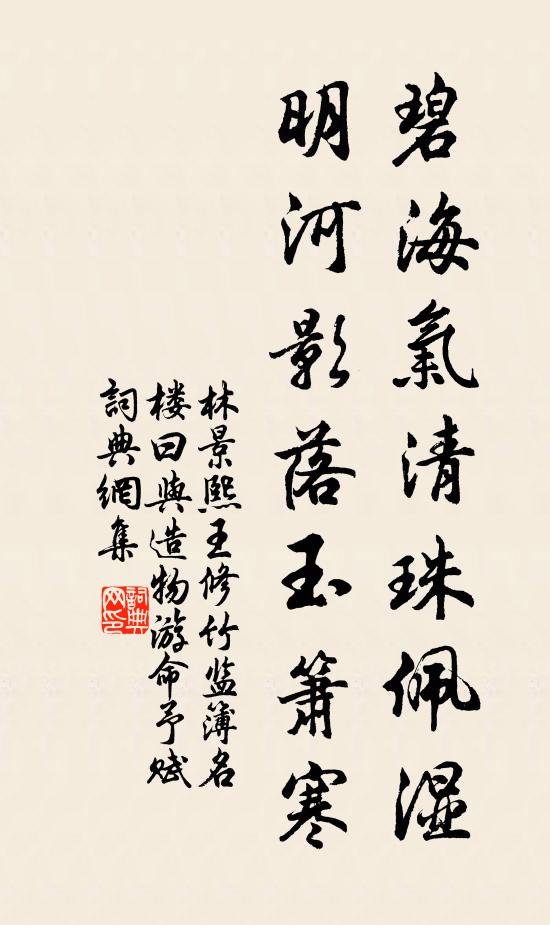 碧海氣清珠佩湿
明河影落玉簫寒
林景熙王修竹监簿名
楼曰與造物游命予赋
詞典網集
詞典
网印